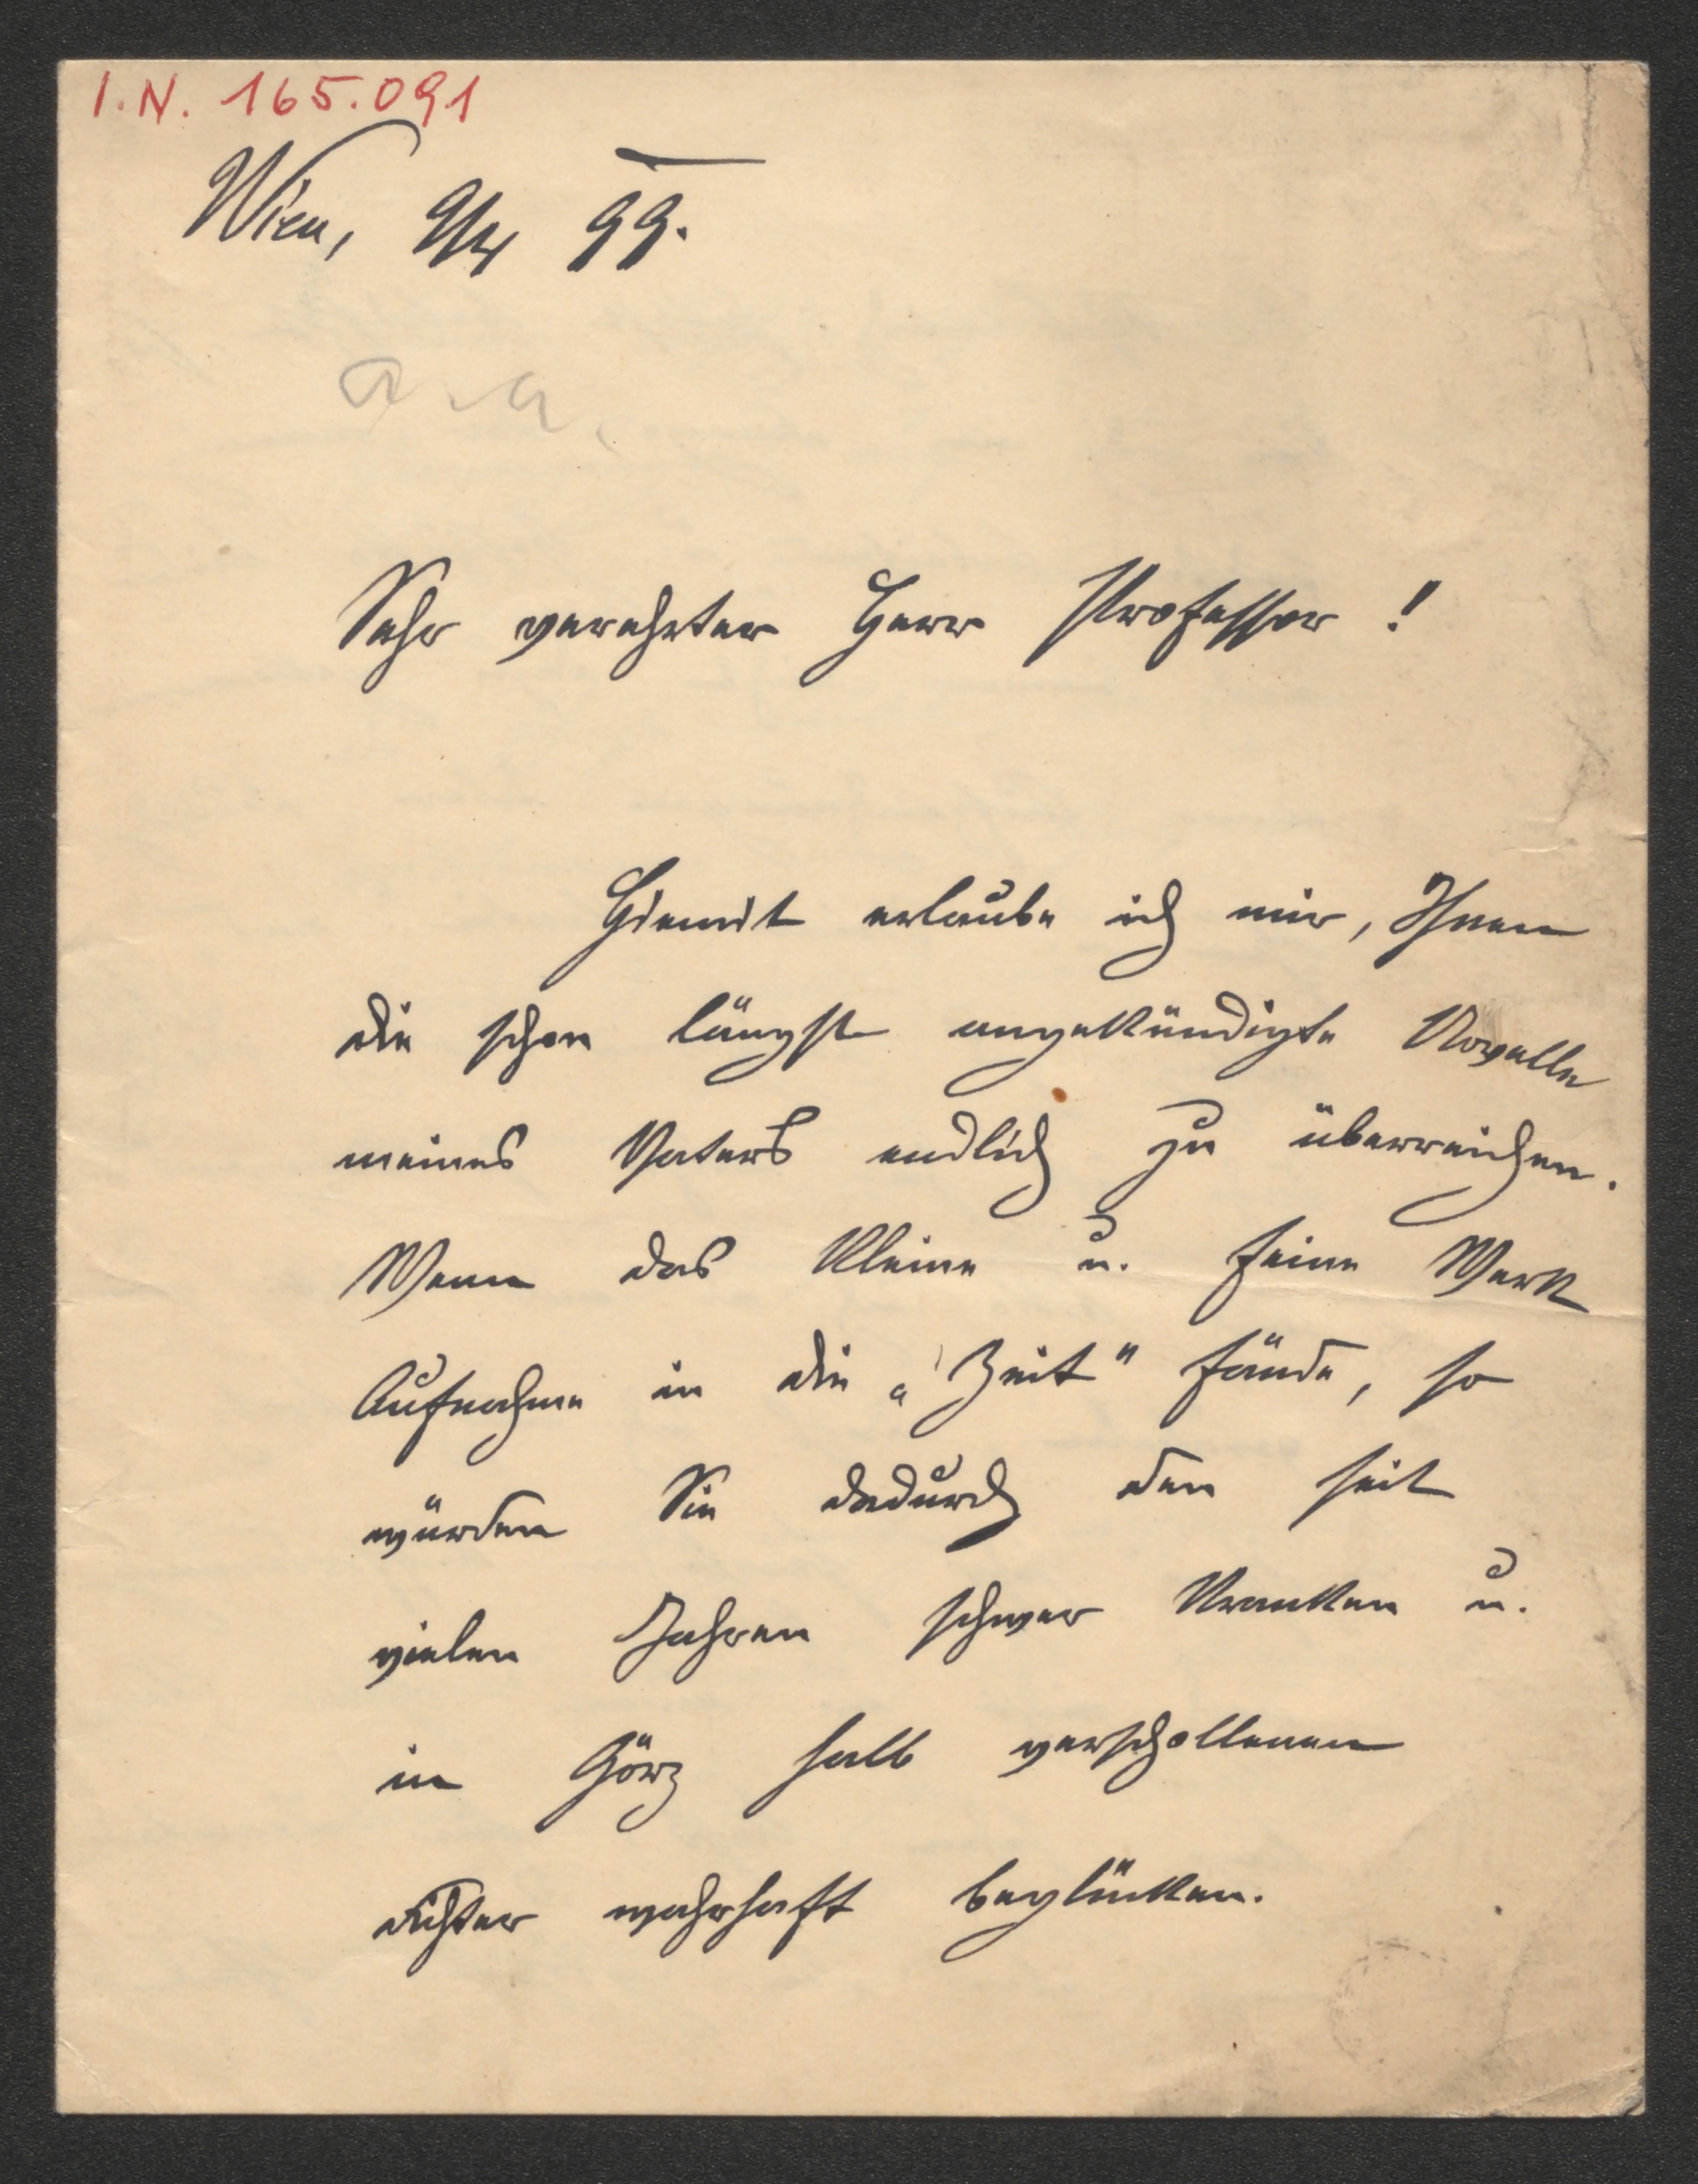 I.N. 165.091
Wien, 9/4 99.
Sehr verehrter Herr Professor !
Hiemit erlaube ich mir, Ihnen
die schon längst angekündigte Novelle
meines Vaters endlich zu überreichen.
Wenn das kleine u. feine Werk
Aufnahme in die „Zeit" fände, so
würden Sie dadurch den seit
vielen Jahren schwer kranken u.
in Görz halb verschollenen
Dichter wahrhaft beglücken.